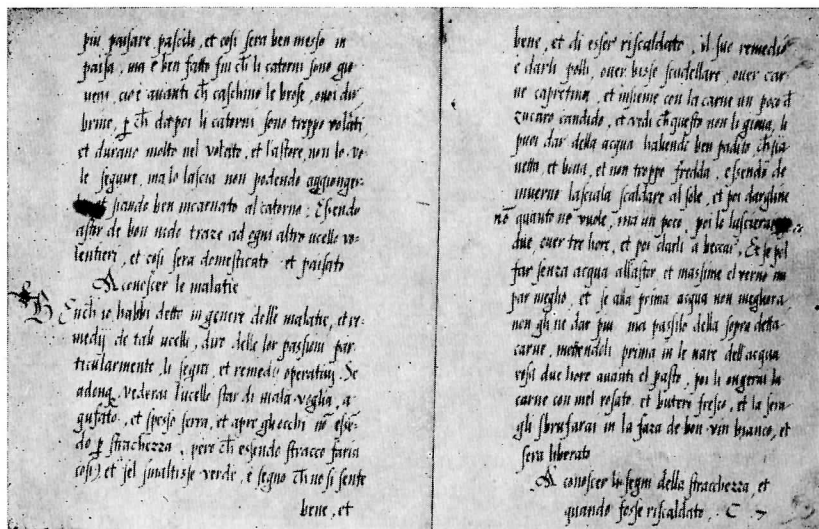 piu paisare, pascilo, et cosi sera ben messo in
paisa, ma è ben fatto fin ch li caterni sono gio-
veni, cio è avanti ch caschino le brose, overo du
brine, p ch da poi li caterni sono troppo volati
et durano molto nel volato, et l'astore, non lo vo-
le seguire, ma lo lascia non podendo aggionger-
siando ben incarnato al caterno: Essendo
astor de bon nido traze ad egni altro ucello vo-
lentieri, et cosi sera domesticato et paisato
A conoscer le malatie
Bench io habbi detto in genere delle malatie, et re-
medij de tali ucelli, diro delle lor passioni par
ticularmente li segni, et remedij operativi. Se
adonq, vederai l'ucello star di mala voglia, a-
gufato, et spesso serra, et apre gli occhi nō essē-
do p strachezza, pero ch essendo stracco faria
cosi) et se'l smaltisse verde, è segno ch no si sente
bene, et
bene, et di esser riscaldato, il suo remedio
è darli polli, over bisse scudellare, over car-
ne capretina, et insieme con la carne un poco d
zucaro candido, et vedi ch questo non li giova, li
puoi dar della acqua havendo ben padito, ch sia
netta, et bona, et non troppo fredda, essendo de
inverno lasciala scaldare al sole, et poi dargline
nō quanto ne vuole, ma un poco, poi lo lascierai
due over tre hore, et poi darli a beccar, Et se pol
far senza acqua all'astor, et massime el verno mi
par meglio, et se alla prima acqua non megliora
non gli ne dar piu ma passilo della sopra detta
carne, mettendoli prima in le nare dell'acqua
rosa due hore avanti el pasto, poi li ongerai la
carne con mel rosato, et butero fresco, et la sera
gli sbrufarai in la faza de bon vin bianco, et
sera liberato
A conoscer li segni della stracchezza, et
quando fosse riscaldato, . C. 7